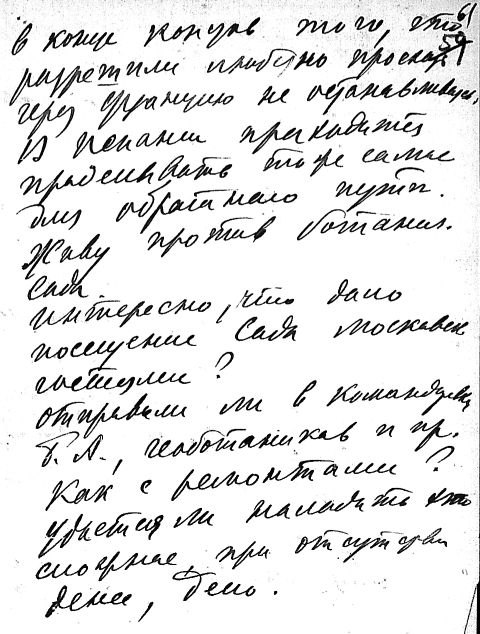 61
59
в конце концов того, что
разрешили любезно проехать
через Францию не останавливаясь.
В Испании приходится
проделывать то же самое
для обратного пути.
Живу против ботанич.
сада.
Интересно, что дало
посещение Сада московск.
гостями?
отправили ли в командировку
Б. А., геоботаников и пр.
Как с ремонтами?
удастся ли наладить это
спорное, при отсутствии
денег, дело.